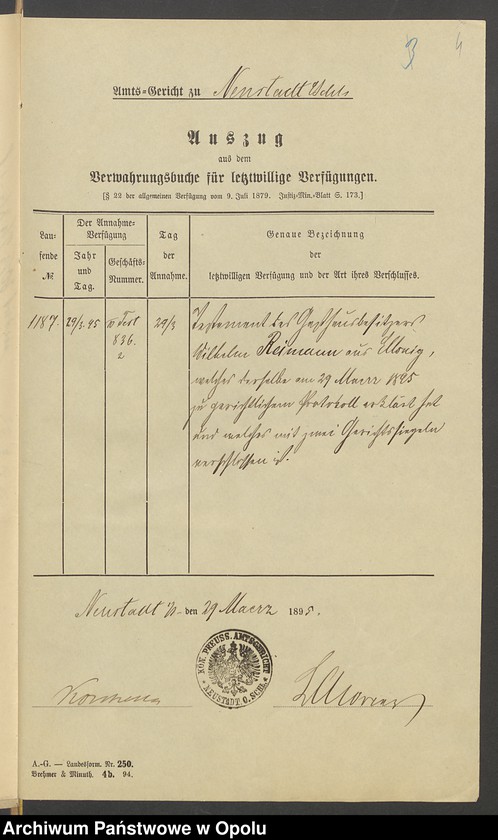 3 4
Amts-Gericht zu Neustadt O/Schls
Auszug
aus dem
Verwahrungsbuche für letztwillige Verfügungen.
[§ 22 der allgemeinen Verfügung vom 9. Juli 1879. Justiz-Min.-Blatt S. 173.]
Lau-
fende
№
Der Annahme-
Verfügung
Jahr
und
Tag.
Geschäfts-
Nummer.
Tag
der
Annahme.
Genaue Bezeichnung
der
letztwilligen Verfügung und der Art ihres Verschlusses.
1187. 29/3. 95 Test 29/3
836.
2
Testament des Gasthausbesitzers
Wilhelm Reimann aus
welches derselbe am 29 Maerz 1895
zu gerichtlichem Protokoll erklärt hat
und welches mit zwei Gerichtssiegeln
verschlossen ist.
Neustadt O/S den 29 Maerz 1895.
KÖN. PREUSS. AMTSGERICHT
NEUSTADT O. SCHL.
A.-G. — Landesform. Nr. 250.
Brehmer & Minuth. 4b. 94.
Archiwum Państwowe w Opolu